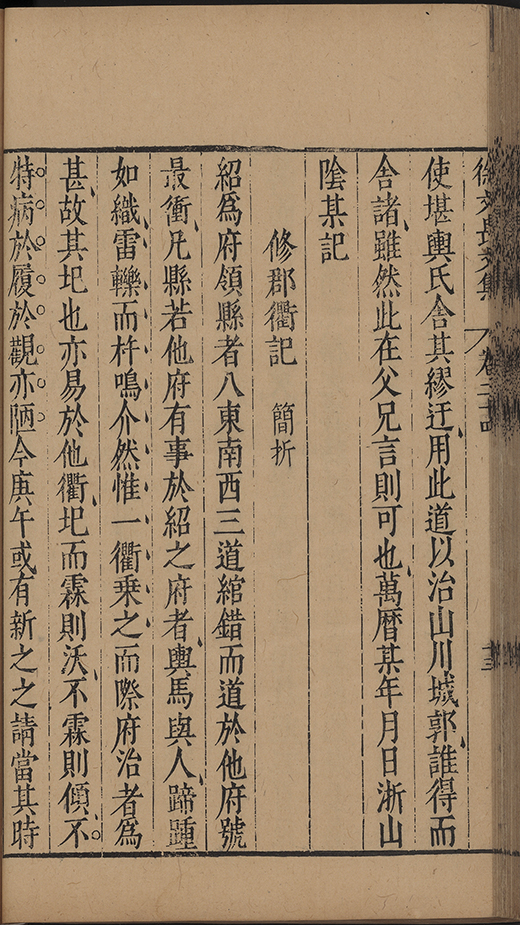 徐文長文集 卷二十四 十三
使堪輿氏舍其繆迂用此道以治山川城郭誰得而
舍諸雖然此在父兄言則可也萬曆某年月日浙山
陰某記
修郡衢記 簡折
紹為府領縣者八東南西三道綰錯而道於他府號
最衝凡縣若他府有事於紹之府者輿馬與人蹄踵
如織雷轢而杵鳴介然惟一衢乗之而際府治者為
甚故其圯也亦易於他衢圯而霖則沃不霖則傾不
特病於履於觀亦陋今庚午或有新之之請當其時